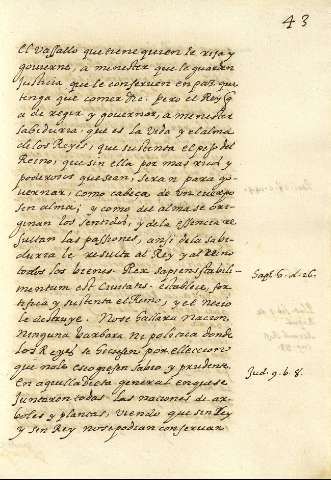 43
el Vassallo que tiene quien le rija y
govierne, a menester que le guarden
justicia que le conserven en paz que
tenga que comer &c. pero el Rey q̃
a de regir y governar, a menester
sabiduria, que es la vida y el alma
de los Reyes, que sustenta el peso del
Reino, que sin ella por mas ricos y
poderosos que sean, seran para go-
vernar, como cabeça de un cuerpo
sin alma; y como del alma se ori-
ginan los sentidos, y de la essencia re-
sultan las passiones, ansi de la sabi-
duria le resulta al Rey y al Reino
todos los bienes. Rex sapiens stabili-
mentum est Civitatis. establece, for-
tifica y sustenta el Reino, y el necio
le destruye. No se hallara nacion,
ninguna barbara ni politica donde
los Reyes se hiciesen por eleccion
que no le escogiesen sabio y prudente.
En aquella dieta general en que se
juntaron todas las naciones de ar-
boles y plantas, viendo que sin ley
y sin Rey no se podian conservar
Sap. 6. d. 26.
Jud. 9. b. 8.